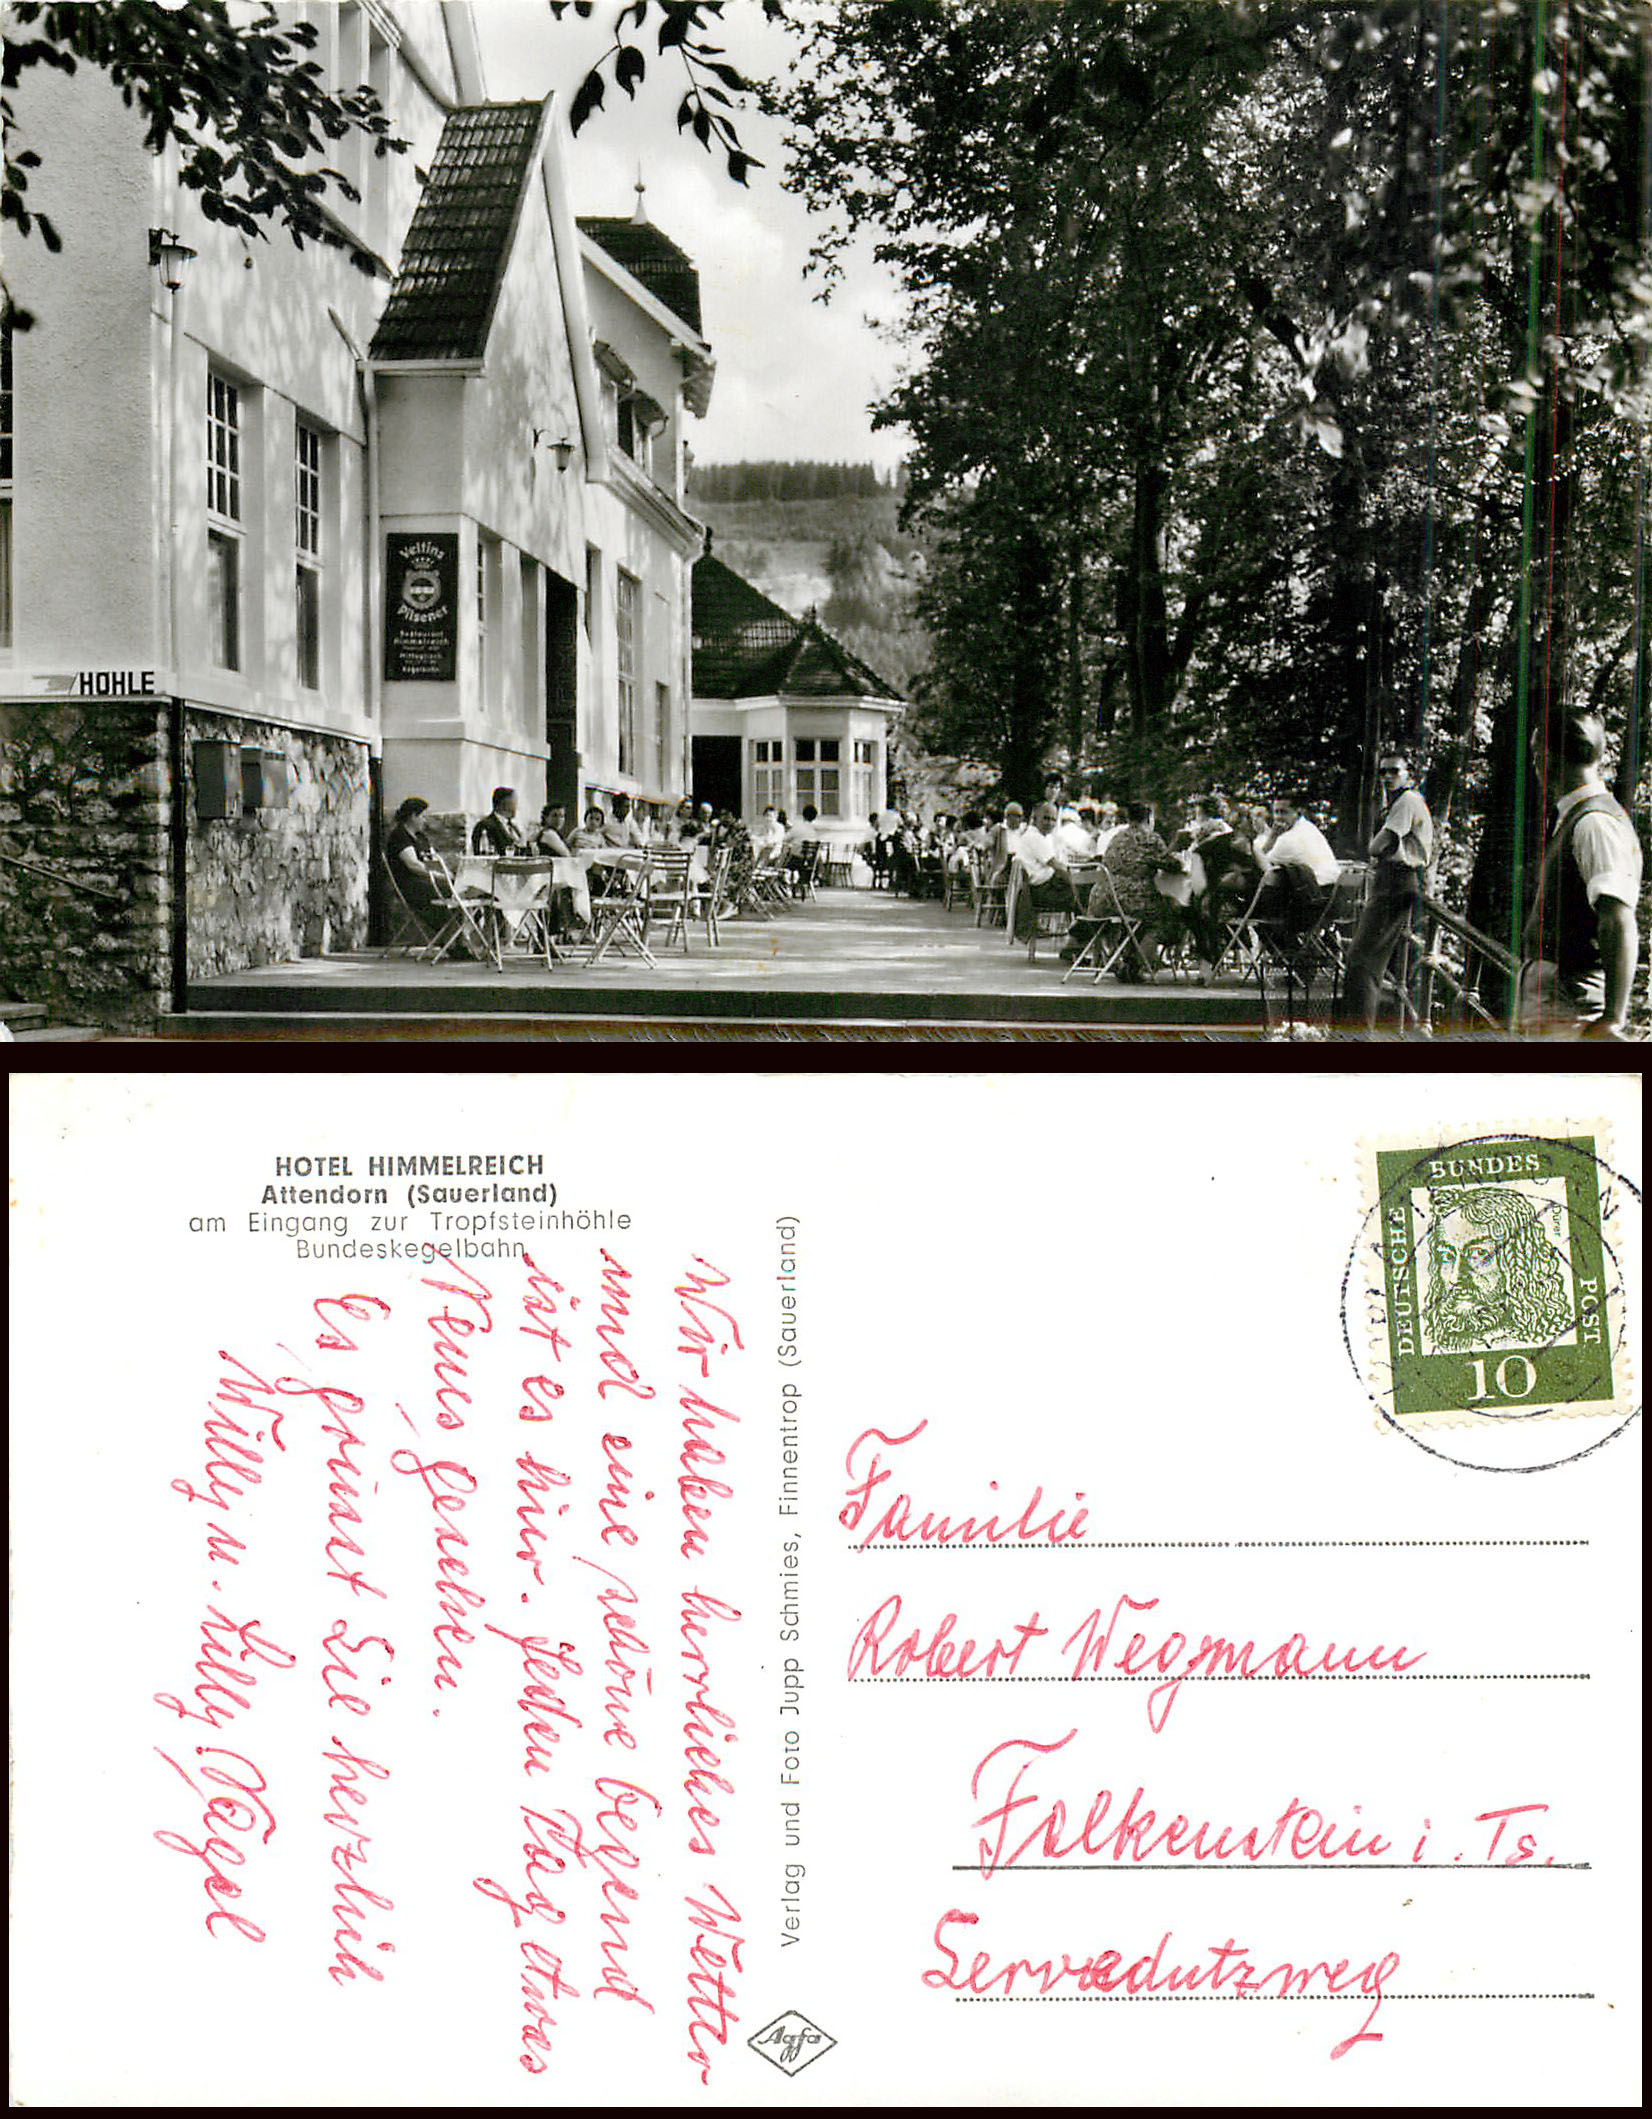 Veltins
Pilsener
Restaurant
Himmelreich
Mittagstisch
Kegelbahn
HÖHLE
HOTEL HIMMELREICH
Attendorn (Sauerland)
am Eingang zur Tropfsteinhöhle
Bundeskegelbahn
Wir haben herrliches Wetter
und eine schöne Gegend
ist es hier. Jeden Tag etwas
Neues gesehen.
Es grüsst Sie herzlich
Willy u. Lilly Nagel
Verlag und Foto Jupp Schmies, Finnentrop (Sauerland)
Agfa
DEUTSCHE
BUNDES
POST
Dürer
10
Familie
Robert Wegmann
Falkenstein i. Ts.